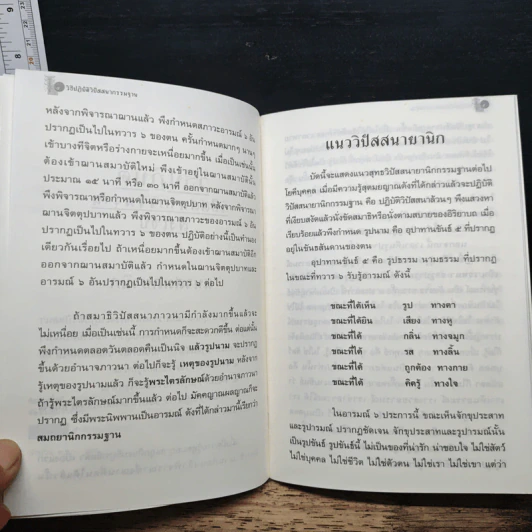 วิธีปฏิบัติวิปัสสนากรรมฐาน
หลังจากพิจารณาฌานแล้ว พึงกำหนดสภาวะอารมณ์ ๖ อัน
ปรากฏเป็นไปในทวาร ๖ ของตน ครั้นกำหนดมากๆ นานๆ
เข้าบางทีจิตหรือร่างกายจะเหนื่อยมากขึ้น เมื่อเป็นเช่นนั้น
ต้องเข้าฌานสมาบัติใหม่ พึงเข้าอยู่ในฌานสมาบัตินั้น
ประมาณ ๑๕ นาที หรือ ๓๐ นาที ออกจากฌานสมาบัติแล้ว
พึงพิจารณาหรือกำหนดในฌานจิตตุปบาท หลังจากพิจารณา
ฌานจิตตุปบาทแล้ว พึงพิจารณาสภาวะของอารมณ์ ๖ อัน
ปรากฏเป็นไปในทวาร ๖ ของตน ปฏิบัติอย่างนี้เป็นทำนอง
เดียวกันเรื่อยไป ถ้าเหนื่อยมากขึ้นต้องเข้าฌานสมาบัติอีก
ออกจากฌานสมาบัติแล้ว กำหนดในฌานจิตตุปบาทและ
อารมณ์ ๖ อันปรากฏเป็นไปในทวาร ๖ ต่อไป
ถ้าสมาธิวิปัสสนาภาวนามีกำลังมากขึ้นแล้วจะ
ไม่เหนื่อย เมื่อเป็นเช่นนี้ การกำหนดก็จะสะดวกดีขึ้น ต่อแต่นั้น
พึงกำหนดตลอดวันตลอดคืนเป็นนิจ แล้วรูปนาม จะปรากฏ
ขึ้นด้วยอำนาจภาวนา ต่อไปก็จะรู้ เหตุของรูปนาม หลังจาก
รู้เหตุของรูปนามแล้ว ก็จะรู้พระไตรลักษณ์ด้วยอำนาจภาวนา
ถ้ารู้พระไตรลักษณ์มากขึ้นแล้ว ต่อไป มัคคญาณผลญาณก็จะ
ปรากฏ ซึ่งมีพระนิพพานเป็นอารมณ์ ดังที่ได้กล่าวมานี้เรียกว่า
สมถยานิกกรรมฐาน
แนววิปัสสนายานิก
บัดนี้จะแสดงแนวสุทธวิปัสสนายานิกกรรมฐานต่อไป
โยคีบุคคล เมื่อมีความรู้สุตมยญาณดังที่ได้กล่าวแล้วจะปฏิบัติ
วิปัสสนากรรมฐาน คือ ปฏิบัติวิปัสสนาล้วนๆ พึงแสวงหา
ที่เงียบสงัดแล้วนั่งขัดสมาธิหรือนั่งตามสบายของอิริยาบถ เมื่อ
เรียบร้อยแล้วพึงกำหนด รูปนาม คือ อุปาทานขันธ์ ๕ ที่ปรากฏ
อยู่ในขันธสันดานของตน
อุปาทานขันธ์ ๕ คือ รูปธรรม นามธรรม ที่ปรากฏ
ในขณะที่ทวาร ๖ รับรู้อารมณ์ ดังนี้
ขณะที่ได้เห็น รูป ทางตา
ขณะที่ได้ยิน เสียง ทางหู
ขณะที่ได้ กลิ่น ทางจมูก
ขณะที่ได้ รส ทางลิ้น
ขณะที่ได้ ถูกต้อง ทางกาย
ขณะที่ได้ คิดรู้ ทางใจ
ในอารมณ์ ๖ ประการนี้ ขณะเห็นจักขุประสาท
และรูปารมณ์ ปรากฏชัดเจน จักขุประสาทและรูปารมณ์นั้น
เป็นรูปขันธ์ รูปขันธ์นี้ ไม่เป็นของที่น่ารัก น่าชอบใจ ไม่ใช่สัตว์
ไม่ใช่บุคคล ไม่ใช่ชีวิต ไม่ใช่ตัวตน ไม่ใช่เรา ไม่ใช่เขา แต่ว่า